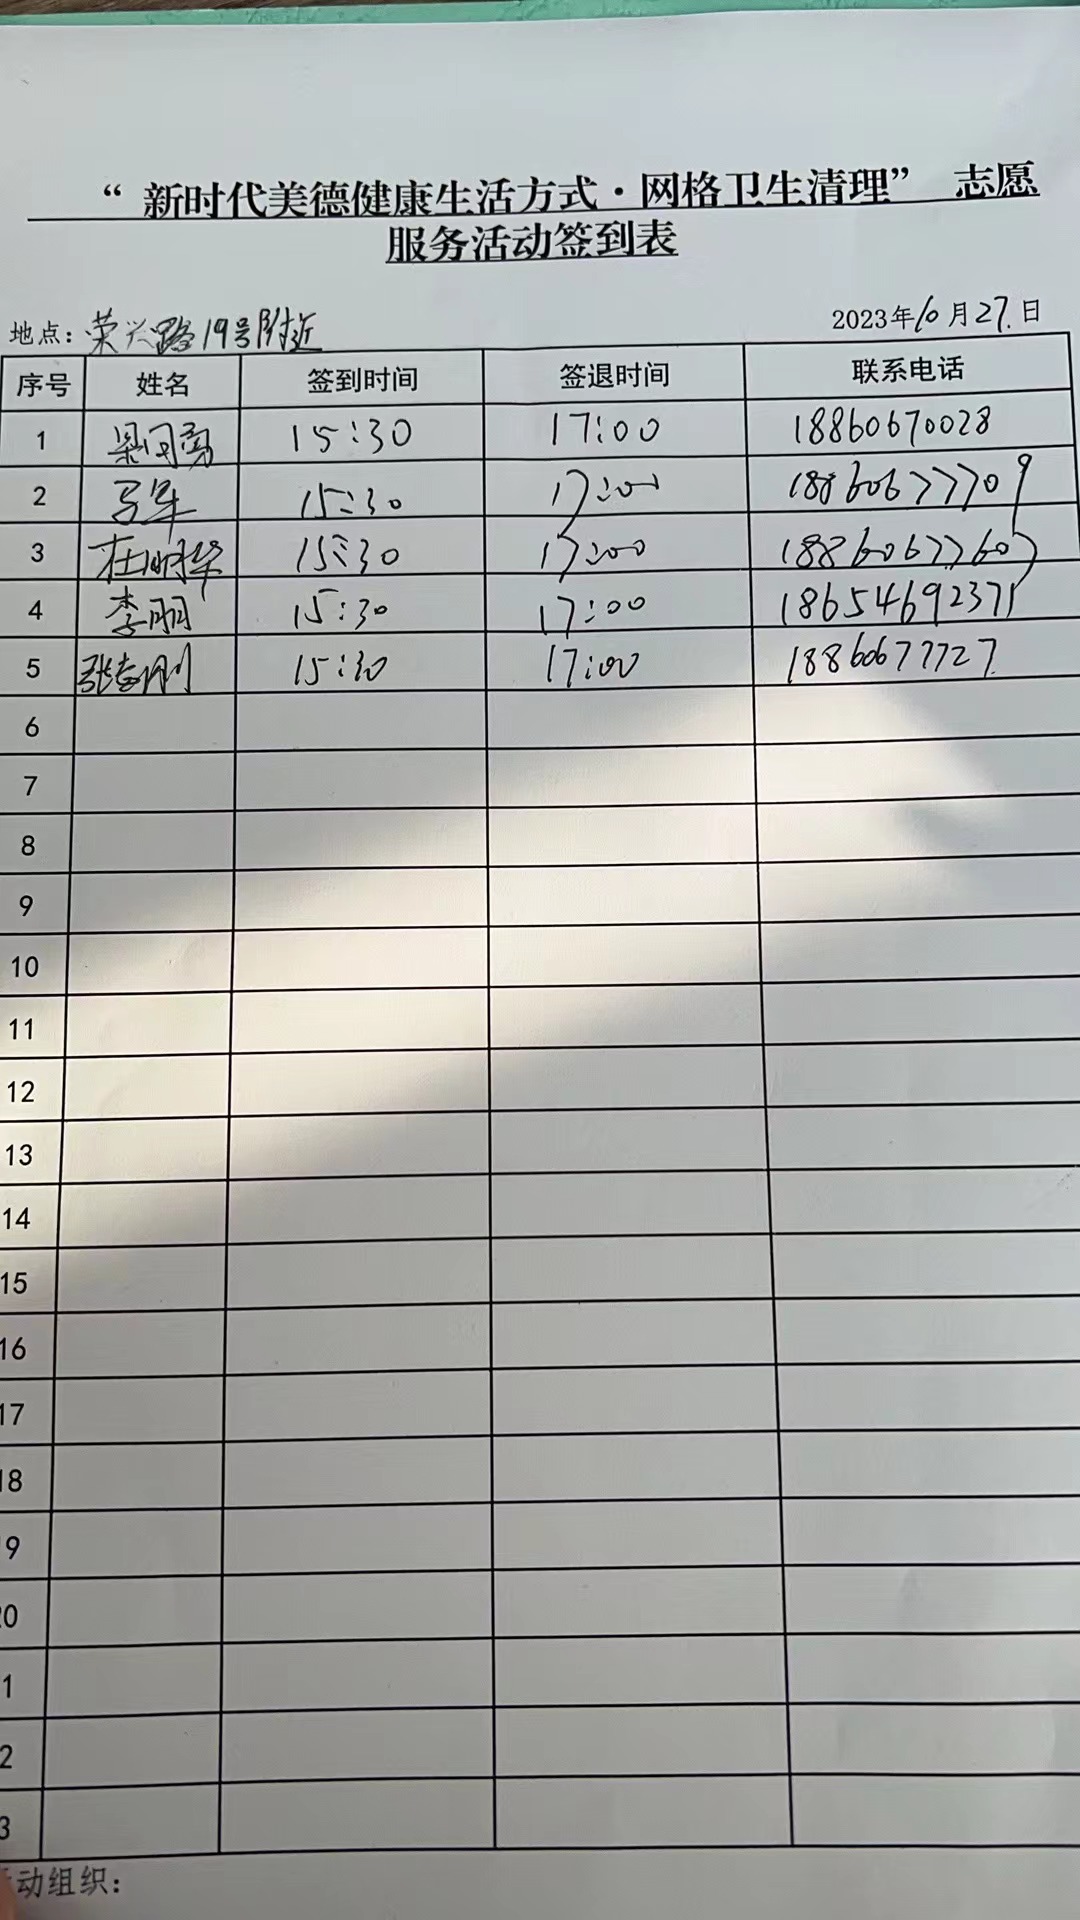 “ 新时代美德健康生活方式·网格卫生清理” 志愿
服务活动签到表
地点：荣兴路19号附近 2023年10月27日
序号 姓名 签到时间 签退时间 联系电话
1 15:30 17:00 18860670028
2 15:30 17:00 18860677709
3 15:30 17:00 18860677607
4 李朋 15:30 17:00 18654692371
5 15:30 17:00 18860677727
6
7
8
9
10
11
12
13
14
15
16
17
18
9
20
1
2
3
动组织：